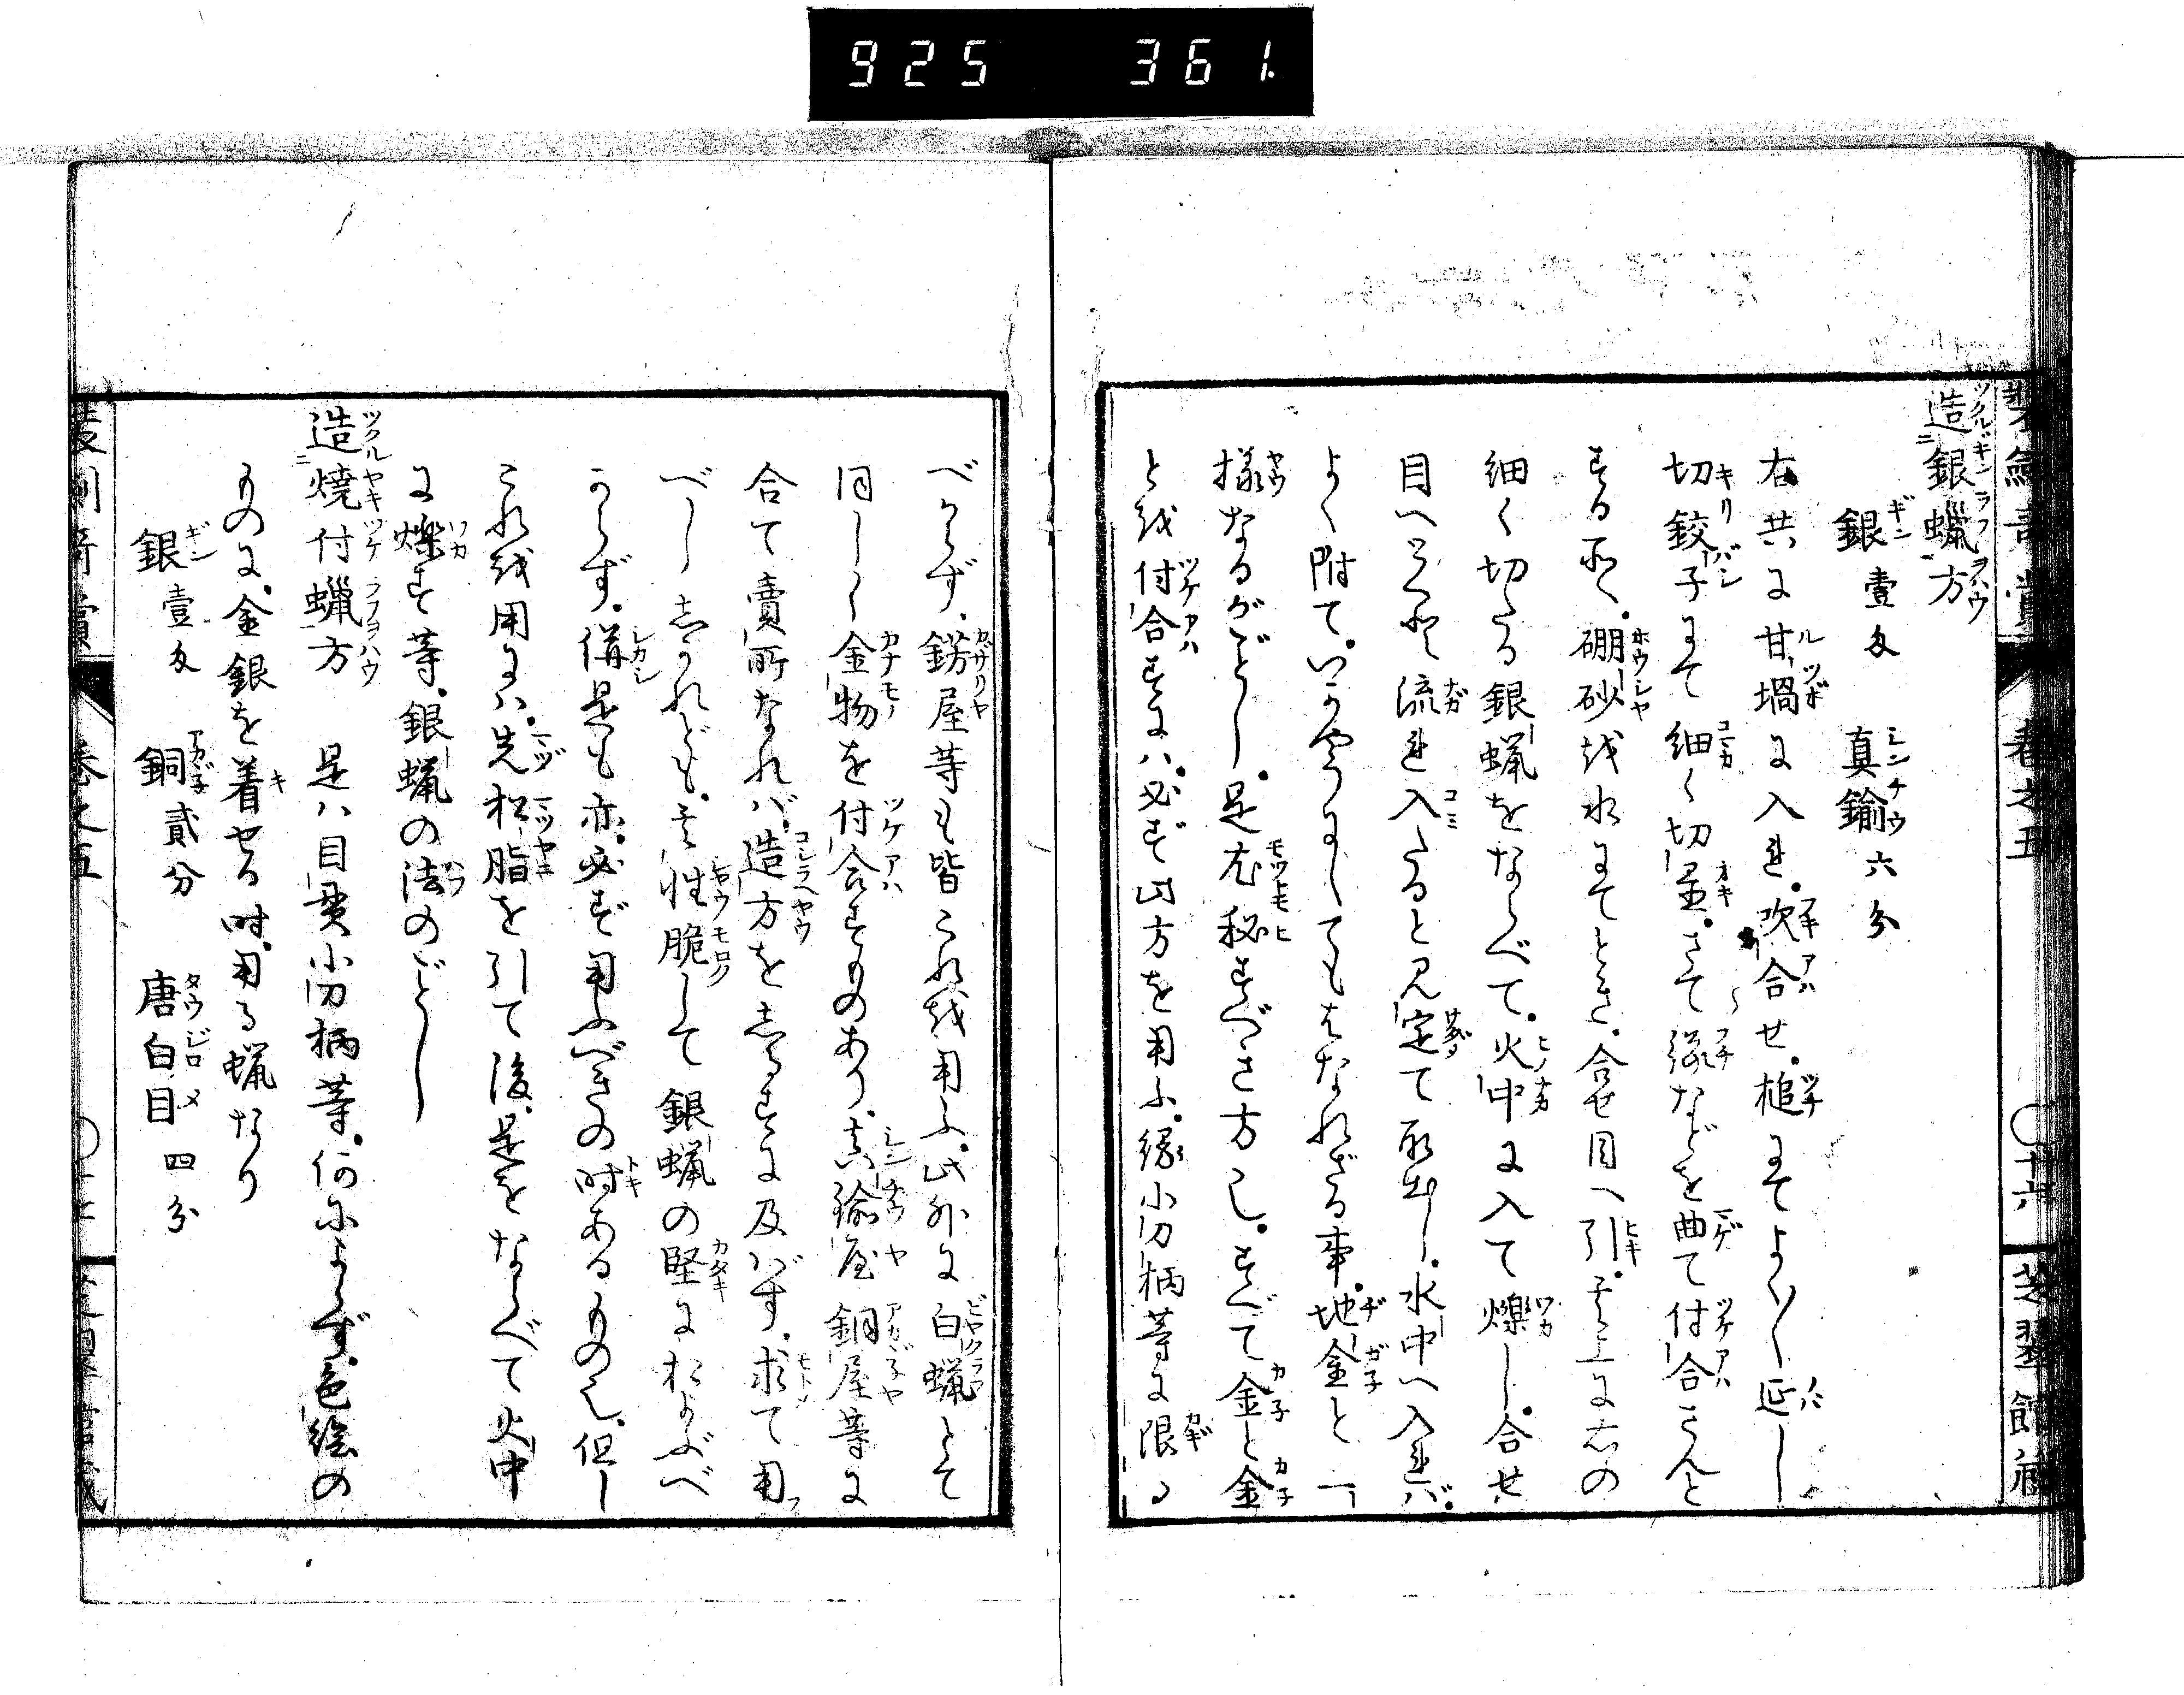 925 361
造銀蝋方
銀壹匁 真鍮六分
右共に甘堝に入れ。吹合せ。槌にてよく〳〵延し
切鋏子にて細く切置。さて縁などを曲て付合さんと
する所へ。硼砂を水にてとき。合せ目へ引。其上に右の
細く切たる銀蝋をならべて。火中に入て爍し。合せ
目へことごとく流れ入たると見定て取出し。水中へ入れバ。
よく附て。いかやうにしてもはなれざる事。地金と一
様なるがごとし。是尤秘すべき方也。すべて金と金
とを付合すにハ。必ず此方を用ふ。縁小刀柄等に限る
卷之五 十六
べからず。錺屋等も皆これを用ふ。此外に白蝋とて
同しく金物を付合すものあり。真鍮屋銅屋等に
合て賣所なれバ。造方をしるすに及バず。求て用ふ
べし しかれども。其性脆して銀蝋の堅におよぶべ
からず。併是も亦。必ず用ふべきの時あるもの也。但し
これを用るにハ。先松脂を引て後。是をならべて火中
に爍す等。銀蝋の法のごとし
造焼付蝋方 是ハ目貫小刀柄等。何によらず。色絵の
ものに。金銀を着せる時。用る蝋なり
銀壹匁 銅貳分 唐白目四分
卷之五